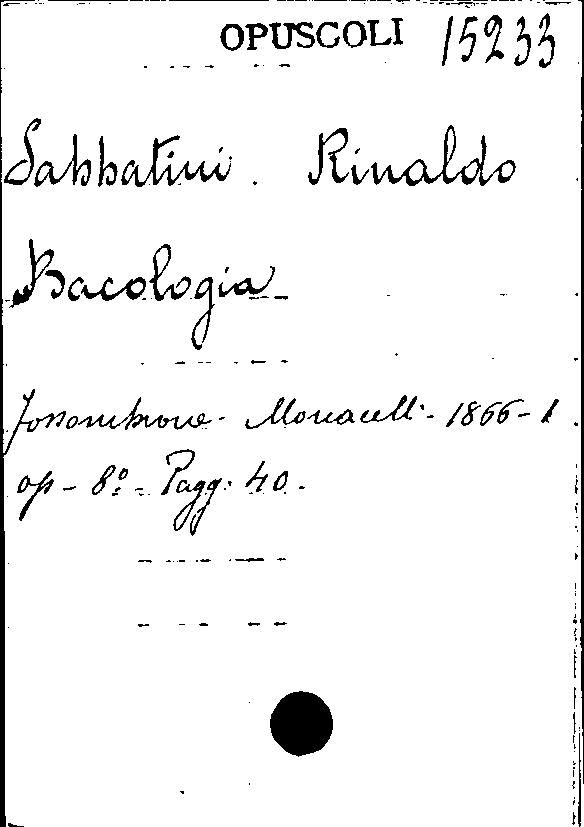 OPUSCOLI 15233
Sabbatini. Rinaldo
Bacologia
Fossombrone - Monacelli - 1866 - 1
op - 8º - Pagg. 40.